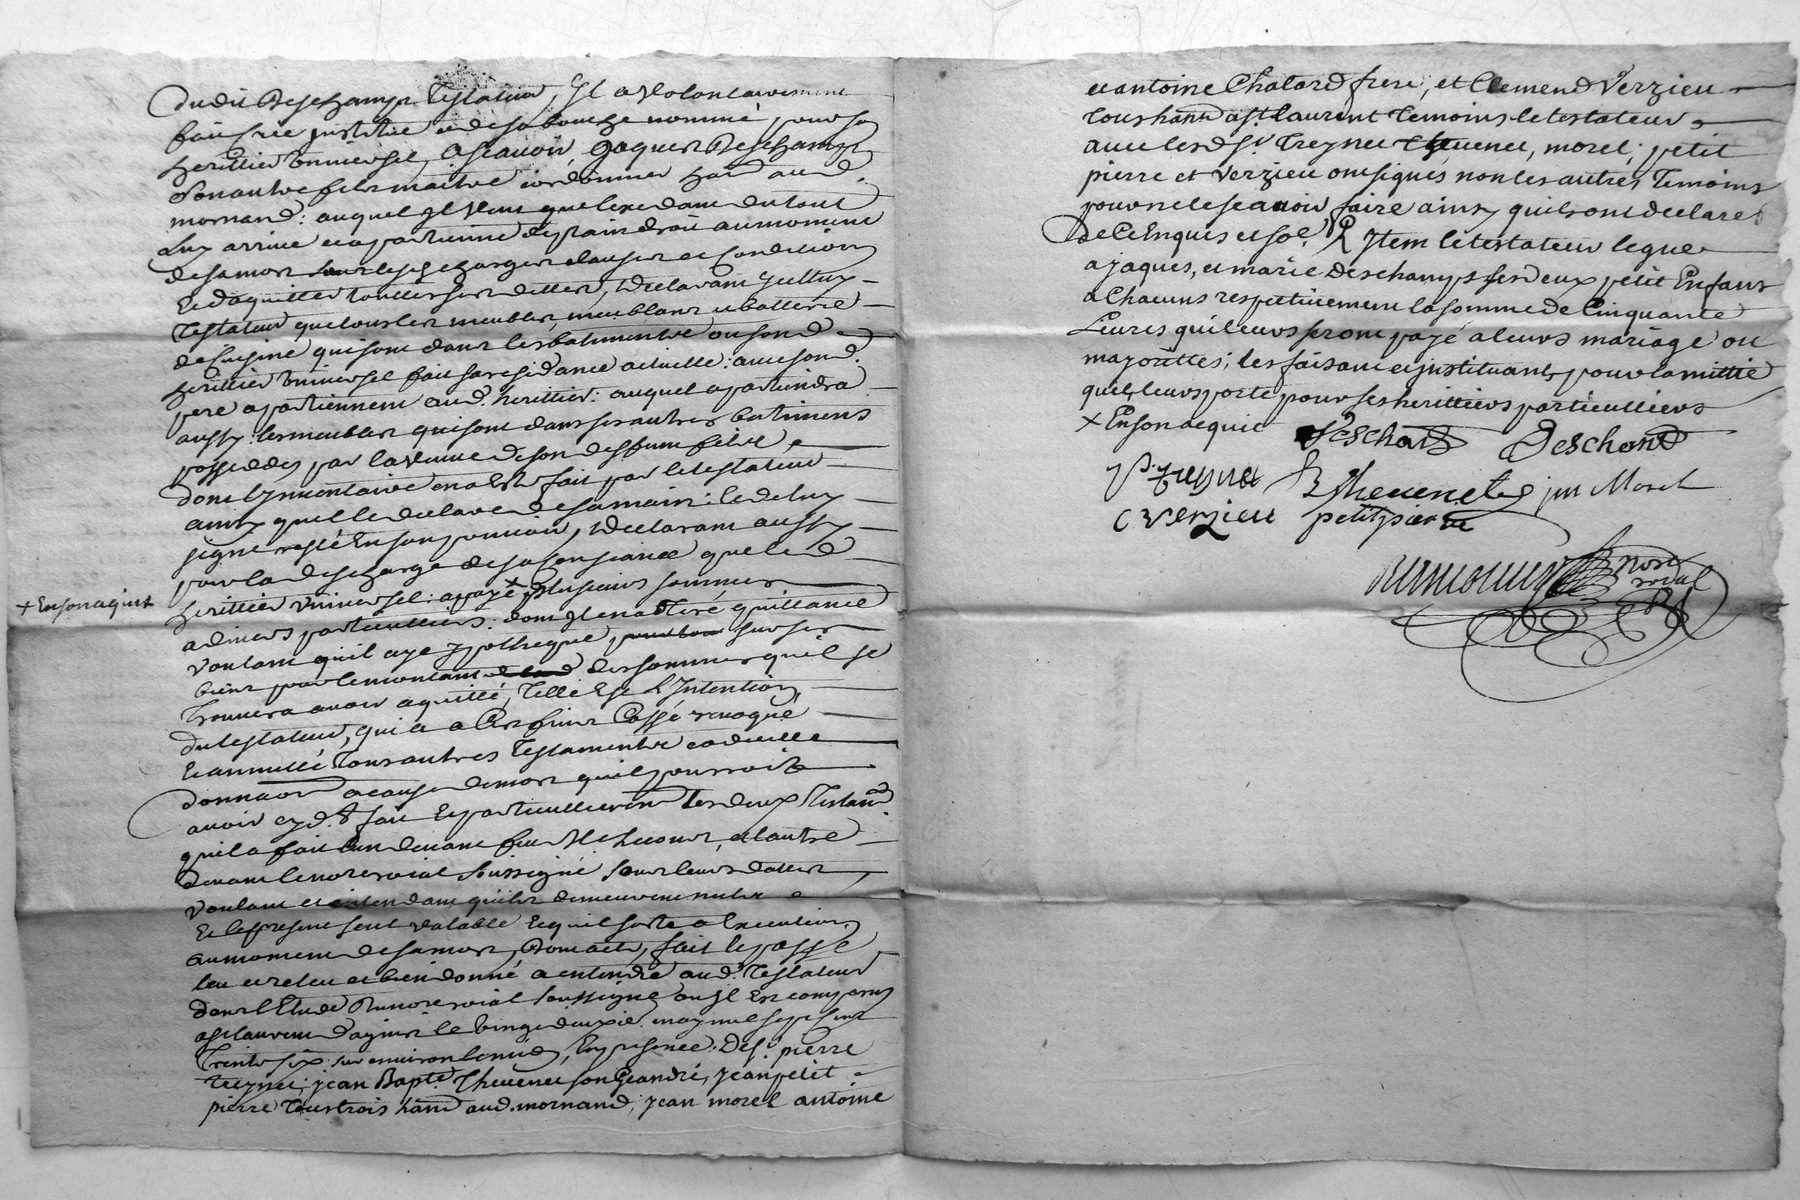 dudit Deschamps Testateur, Il a volontairement
fait Créé institué et de sa bouche nommé, pour son
heritier universel, ascavoir, jaques Deschamps
son autre fils maitre cordonnier hant aud.
mornand: auquel Il veut que l'exedant du tout
Luy arrive et apartienne de plain droit au moment
de sa mort sous les charges clauses et Conditions
Et d'aquitter touttes ses dettes, declarant Icelluy
Testateur que tous les meubles, meublans et batterie
de Cuisine qui sont dans les batimentz ou son d.
heritier universel fait sa residance actuelle: avec son d.
pere apartiennent aud. heritier: auquel apartiendra
aussy: les meubles qui sont dans ses autres batimens
possedés par la veuve de son deffunt fils
dont Inventaire en a Esté fait par le testateur
ainsy qu'elle declare de sa main: le deluy
signé resté En son pouvoir, declarant aussy
pour la descharge de sa Consiance que le d.
heritier universel: a payé + plusieurs sommes
+ En son aquit
a divers particulliers: dont Il en a Tiré quittance
voulant qu'il aye ypotheque sur ses
biens pour le montant des sommes qu'il se
Trouvera avoir aquitté, Telle Est L'Intention
du testateur, qui a a Ces fins Cassé revoqué
Et annullé Tous autres Testamentz codicille
donnaon a cause de mort qu'il pourroit
avoir cy d. fait Et particullierement les deux Testamt
qu'il a fait l'un devant feu Me , et l'autre
devant le nore roial soussigné sous leurs dattes,
voulant et entendant qu'ils demeurent nuls
Et le present seul valable Et qu'il sorte a Execution
au moment de sa mort, Dont acte, fait Et passé
leu et releu et bien donné a entendre aud. Testateur
dans l'Etude Du nore roial soussigné ou Il Est comparus
a St Laurent d'agnus le vingt deuxie. may mil sept cent
Trente six sur environ le midy, En presence, De St. pierre
treynet, jean Bapte. Thevenet son Geandre, jean petit
pierre Tous trois hant aud. mornand, jean morel antoine
et antoine Chatard frere, et Clemend Verzieu
tous hant a St Laurent Temoins le testateur
avec lesd. Sr. Treynet Thevenet, morel, petit
pierre et verzieu ont signés non les autres Temoins
pour ne le scavoir faire ainsy qu'ils ont declaret
De Ce Enquis et So. Item le testateur legue
a jaques, et marie Deschamps ses deux petit Enfans
a Chacuns respectivement la somme de Cinquante
Livres qui leurs seront payé a leurs mariage ou
majorittés; les faisant et instituant, pour la mittié
qu'il leurs porte pour ses heritiers particulliers
+ En son acquit Deschand Deschand
P. treynet B Thevenet jn Morel
C Verzieu petit pierre
nore
roial